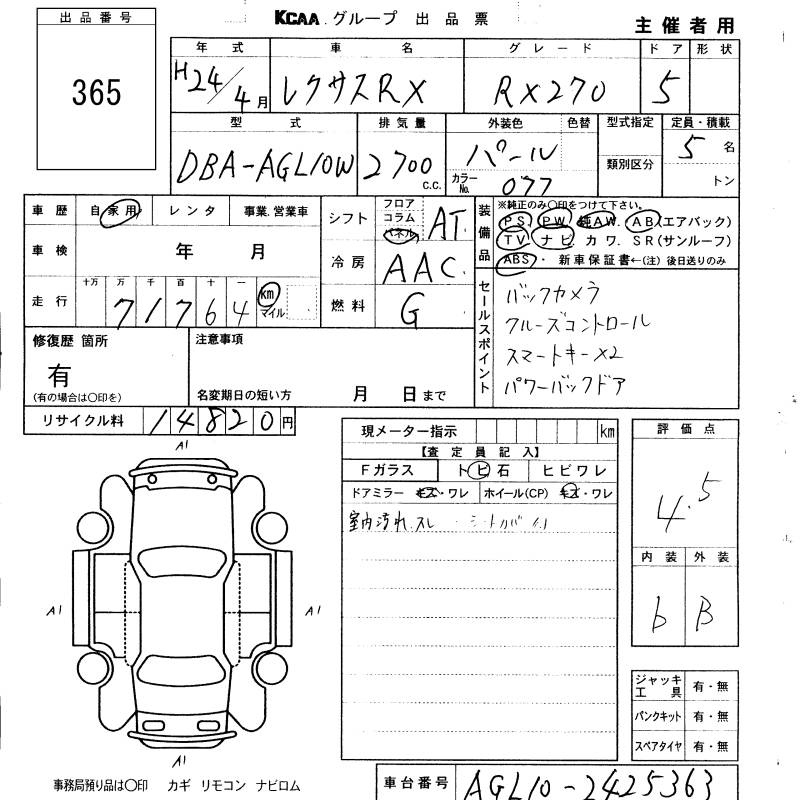 出品番号
365
KCAA グループ 出品票
主催者用
年式 車名 グレード ドア 形状
H24/4月 レクサスRX RX270 5
型式 排気量 外装色 色替 型式指定 定員・積載
DBA-AGL10W 2700 c.c. パール 5名
カラーNo. 077 類別区分 トン
車歴 自家用 レンタ 事業.営業車
シフト フロア コラム パネル AT
装備品 ※純正のみ○印をつけて下さい。
PS. PW 純AW. AB(エアバック)
TV. ナビ カワ. SR(サンルーフ)
ABS・ 新車保証書←(注)後日送りのみ
車検 年 月
冷房 AAC
走行 十万 万 千 百 十 一
71764 km マイル
燃料 G
セールスポイント
バックカメラ
クルーズコントロール
スマートキー×2
パワーバックドア
修復歴 箇所
有
(有の場合は○印を)
注意事項
名変期日の短い方 月 日まで
リサイクル料 14820円
現メーター指示 km
【査定員記入】
Fガラス トビ石 ヒビワレ
ドアミラー キズ・ワレ ホイール(CP) キズ・ワレ
室内汚れ.スレ
評価点
4.5
内装 外装
b B
A1
A1
A1
A1
ジャッキ工具 有・無
パンクキット 有・無
スペアタイヤ 有・無
事務局預り品は○印 カギ リモコン ナビロム
車台番号 AGL10-2425363